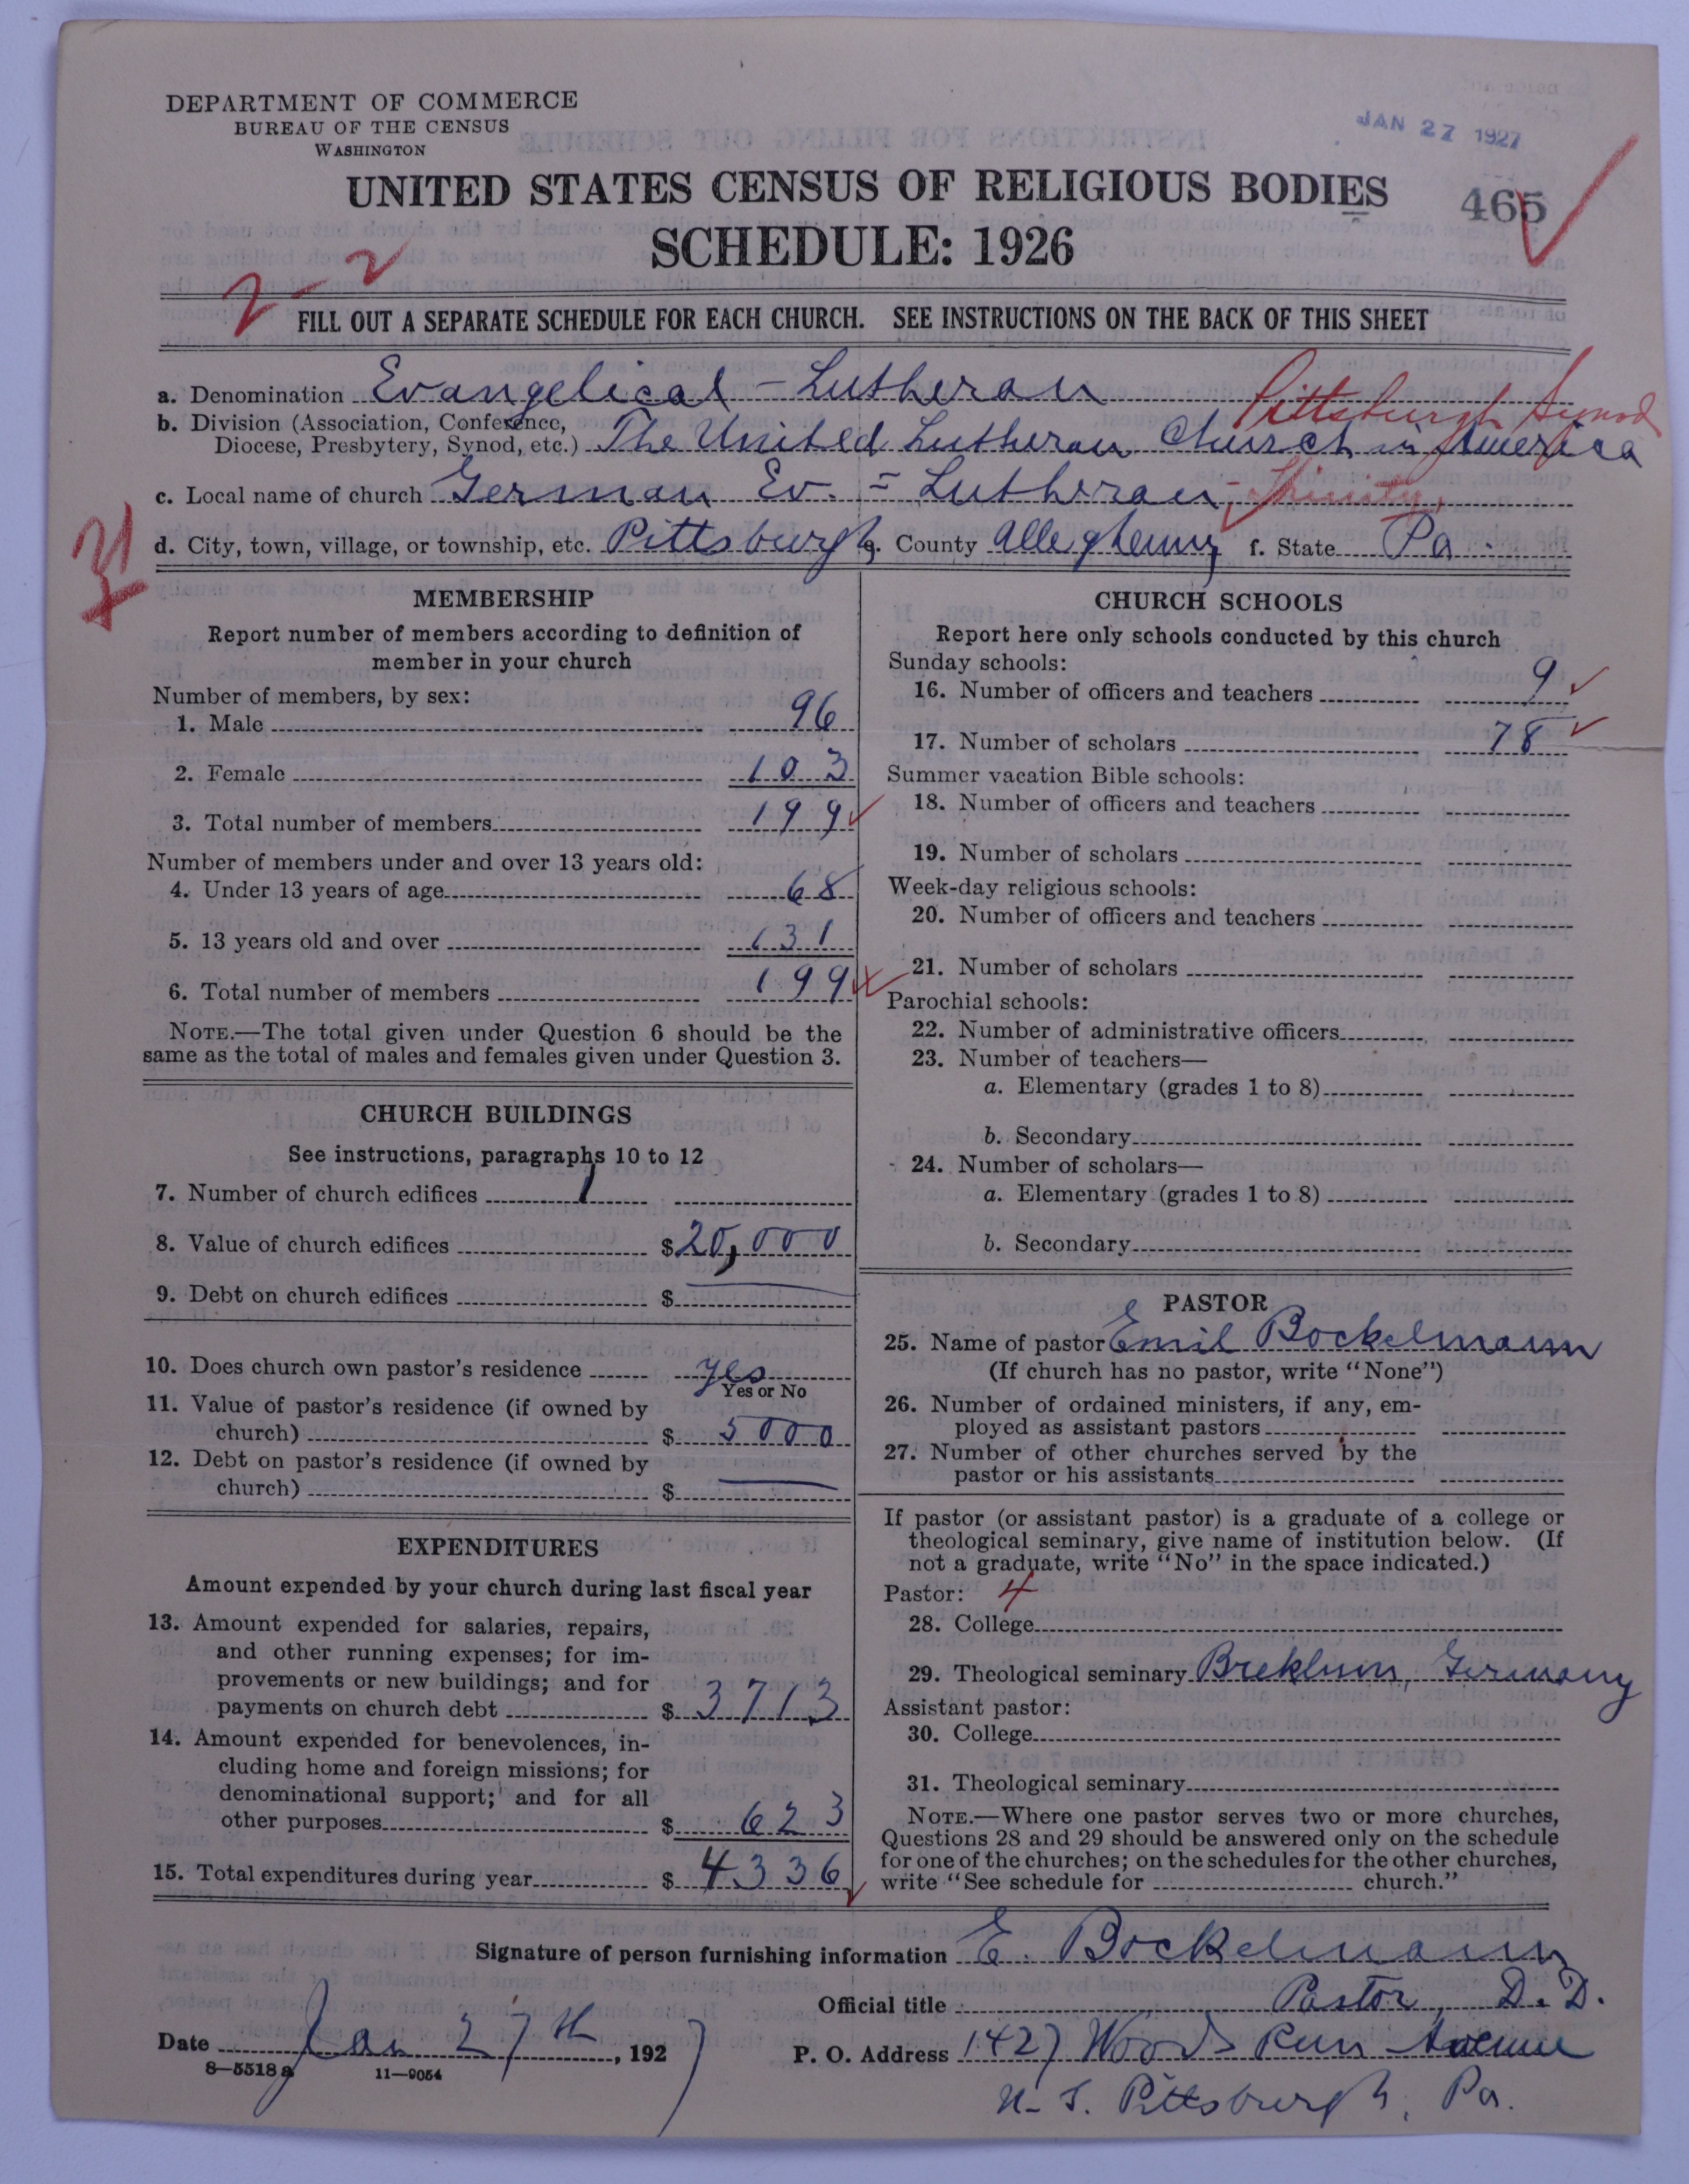 DEPARTMENT OF COMMERCE
BUREAU OF THE CENSUS
WASHINGTON
JAN 27 1927
UNITED STATES CENSUS OF RELIGIOUS BODIES
465
SCHEDULE: 1926
2-2
FILL OUT A SEPARATE SCHEDULE FOR EACH CHURCH. SEE INSTRUCTIONS ON THE BACK OF THIS SHEET
a. Denomination Evangelical - Lutheran
Pittsburgh Synod
b. Division (Association, Conference, Diocese, Presbytery, Synod, etc.) The United Lutheran Church in America
c. Local name of church German Ev. = Lutheran, Trinity,
d. City, town, village, or township, etc. Pittsburgh e. County Allegheny f. State Pa.
MEMBERSHIP
Report number of members according to definition of
member in your church
Number of members, by sex:
1. Male 96
2. Female 103
3. Total number of members 199
Number of members under and over 13 years old:
4. Under 13 years of age 68
5. 13 years old and over 131
6. Total number of members 199
NOTE.—The total given under Question 6 should be the
same as the total of males and females given under Question 3.
CHURCH BUILDINGS
See instructions, paragraphs 10 to 12
7. Number of church edifices 1
8. Value of church edifices $20,000
9. Debt on church edifices $ —
10. Does church own pastor's residence yes
Yes or No
11. Value of pastor's residence (if owned by
church) $ 5000
12. Debt on pastor's residence (if owned by
church) $ —
EXPENDITURES
Amount expended by your church during last fiscal year
13. Amount expended for salaries, repairs,
and other running expenses; for im-
provements or new buildings; and for
payments on church debt $ 3713
14. Amount expended for benevolences, in-
cluding home and foreign missions; for
denominational support; and for all
other purposes $ 623
15. Total expenditures during year $ 4336
CHURCH SCHOOLS
Report here only schools conducted by this church
Sunday schools:
16. Number of officers and teachers 9
17. Number of scholars 78
Summer vacation Bible schools:
18. Number of officers and teachers
19. Number of scholars
Week-day religious schools:
20. Number of officers and teachers
21. Number of scholars
Parochial schools:
22. Number of administrative officers
23. Number of teachers—
a. Elementary (grades 1 to 8)
b. Secondary
24. Number of scholars—
a. Elementary (grades 1 to 8)
b. Secondary
PASTOR
25. Name of pastor Emil Bockelmann
(If church has no pastor, write "None")
26. Number of ordained ministers, if any, em-
ployed as assistant pastors
27. Number of other churches served by the
pastor or his assistants
If pastor (or assistant pastor) is a graduate of a college or
theological seminary, give name of institution below. (If
not a graduate, write "No" in the space indicated.)
Pastor: 4
28. College
29. Theological seminary Breklum, Germany
Assistant pastor:
30. College
31. Theological seminary
NOTE.—Where one pastor serves two or more churches,
Questions 28 and 29 should be answered only on the schedule
for one of the churches; on the schedules for the other churches,
write "See schedule for church."
Signature of person furnishing information E. Bockelmann
Official title Pastor, D.D.
Date Jan 27th, 1927
P. O. Address 1427 Woods Run Avenue
N. S. Pittsburgh, Pa.
8—5518 a 11—9054